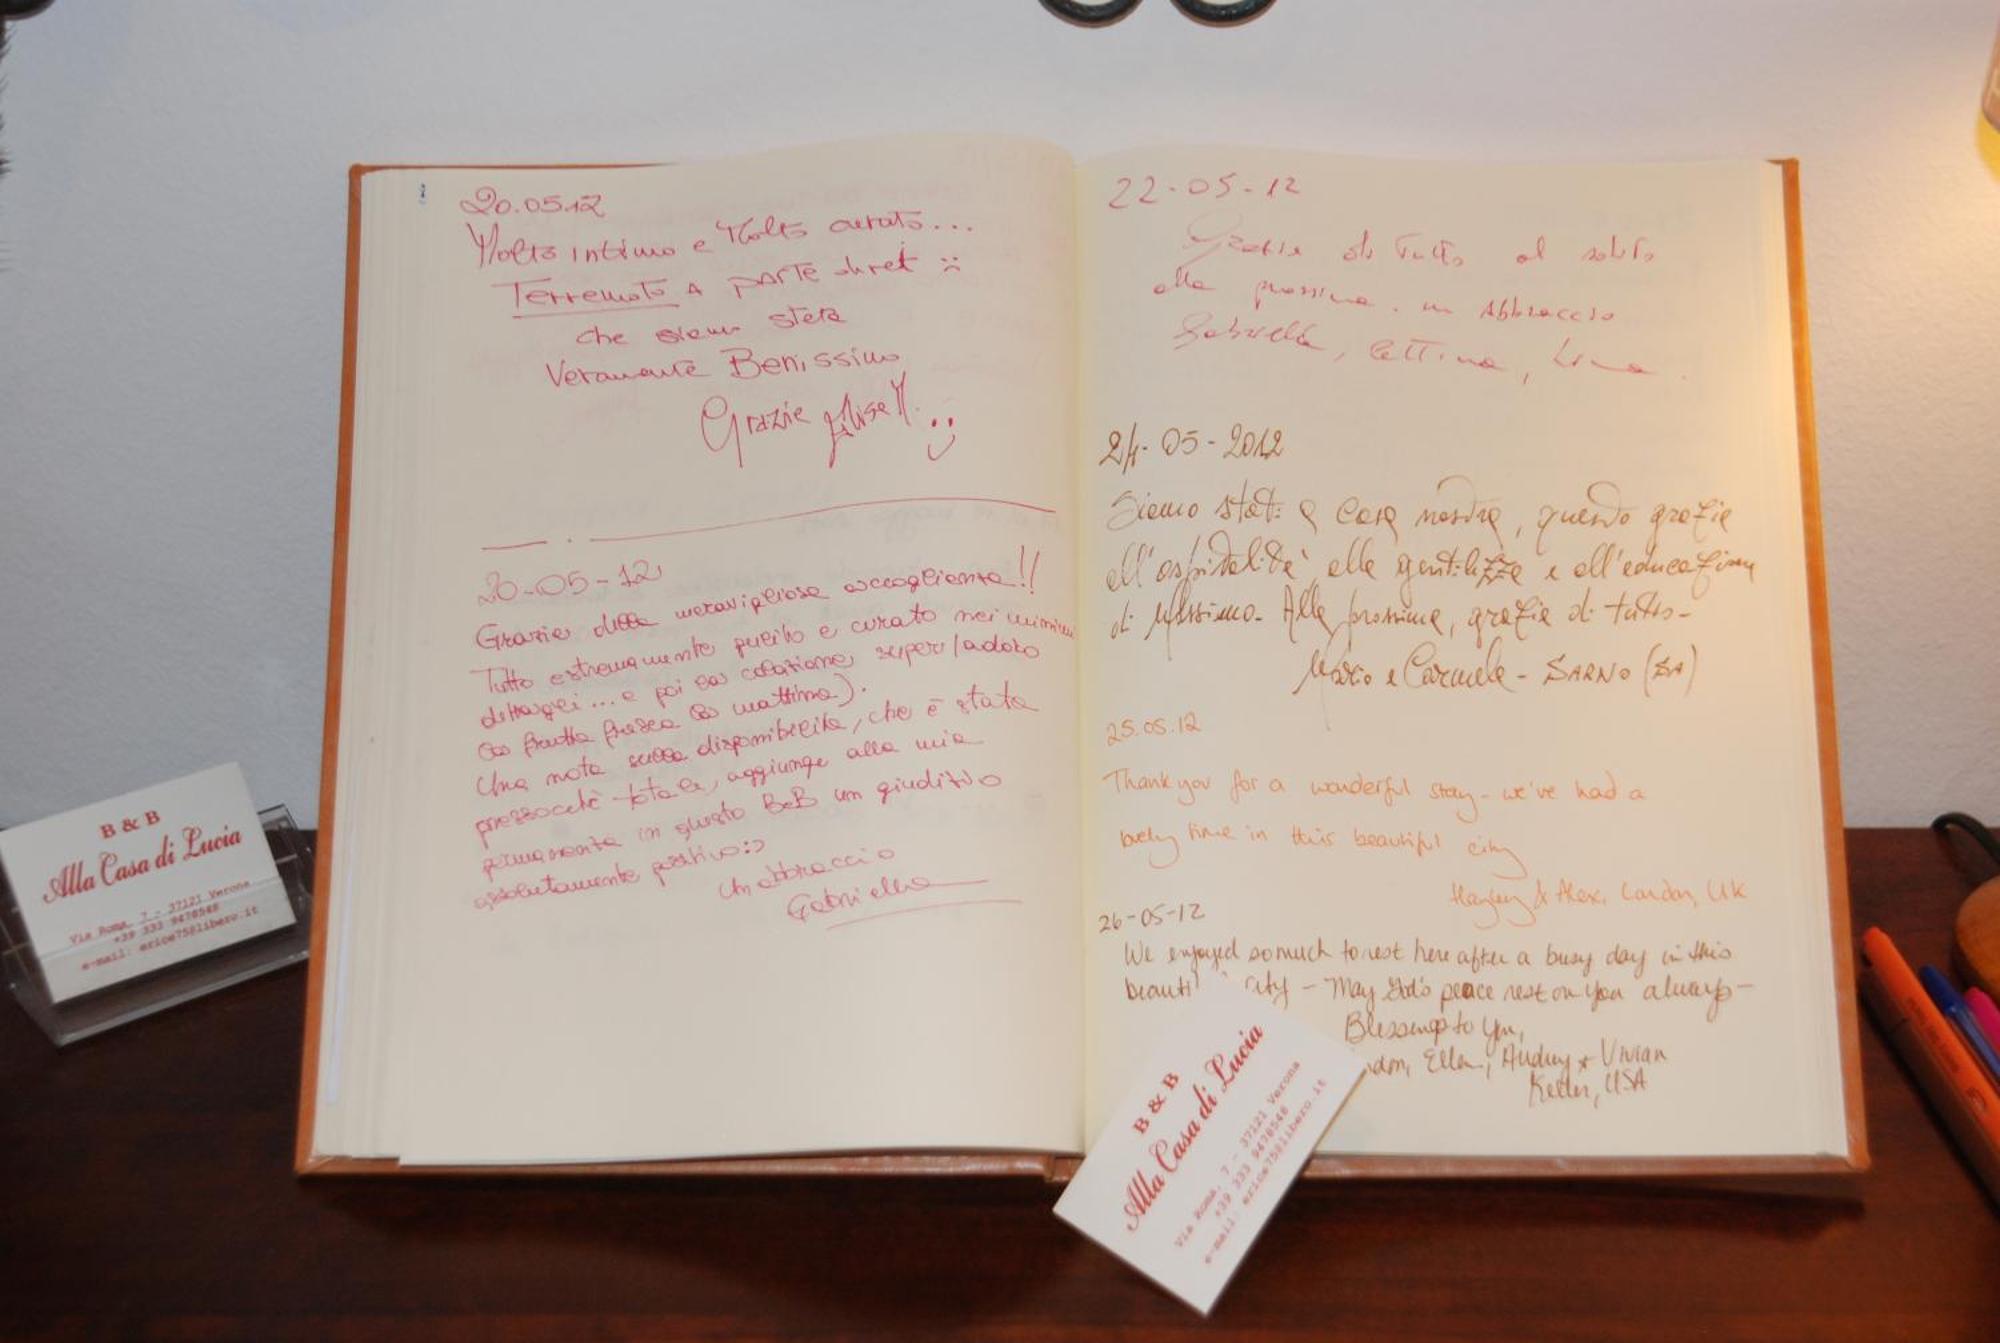 20.05.12
Molto intimo e Molto curato...
Terremoto A parte direi :(
che siamo state
Veramente Benissimo
Grazie
20-05-12
Grazie della meravigliosa accoglienza!!
Tutto estremamente pulito e curato nei minimi
dettagli... e poi la colazione, super (adoro
la frutta fresca la mattina).
Una nota sulla disponibilità, che è stata
pressoché totale, aggiunge alla mia
permanenza in questo B&B un giudizio
assolutamente positivo :)
Un abbraccio
Gabriella
22-05-12
Grazie di tutto al solito
alla prossima. un abbraccio
Gabriella, Lettina, Lina.
24-05-2012
Siamo stati a casa nostra, quindi grazie
all'ospitalità alla gentilezza e all'educazione
di Massimo. Alla prossima, grazie di tutto-
Mario e Carmela - SARNO (SA)
25.05.12
Thank you for a wonderful stay - we've had a
lovely time in this beautiful city
& Alex, London, UK
26-05-12
We enjoyed so much to rest here after a busy day in this
beauti city - May God's peace rest on you always-
Blessings to you,
Ellen, Audrey & Vivian
Keller, USA
B & B
Alla Casa di Lucia
Via Roma, 7 - 37121 Verona
+39 333 9478548
e-mail: erice75@libero.it
B & B
Alla Casa di Lucia
Via Roma, 7 - 37121 Verona
+39 333 9478548
e-mail: erice75@libero.it